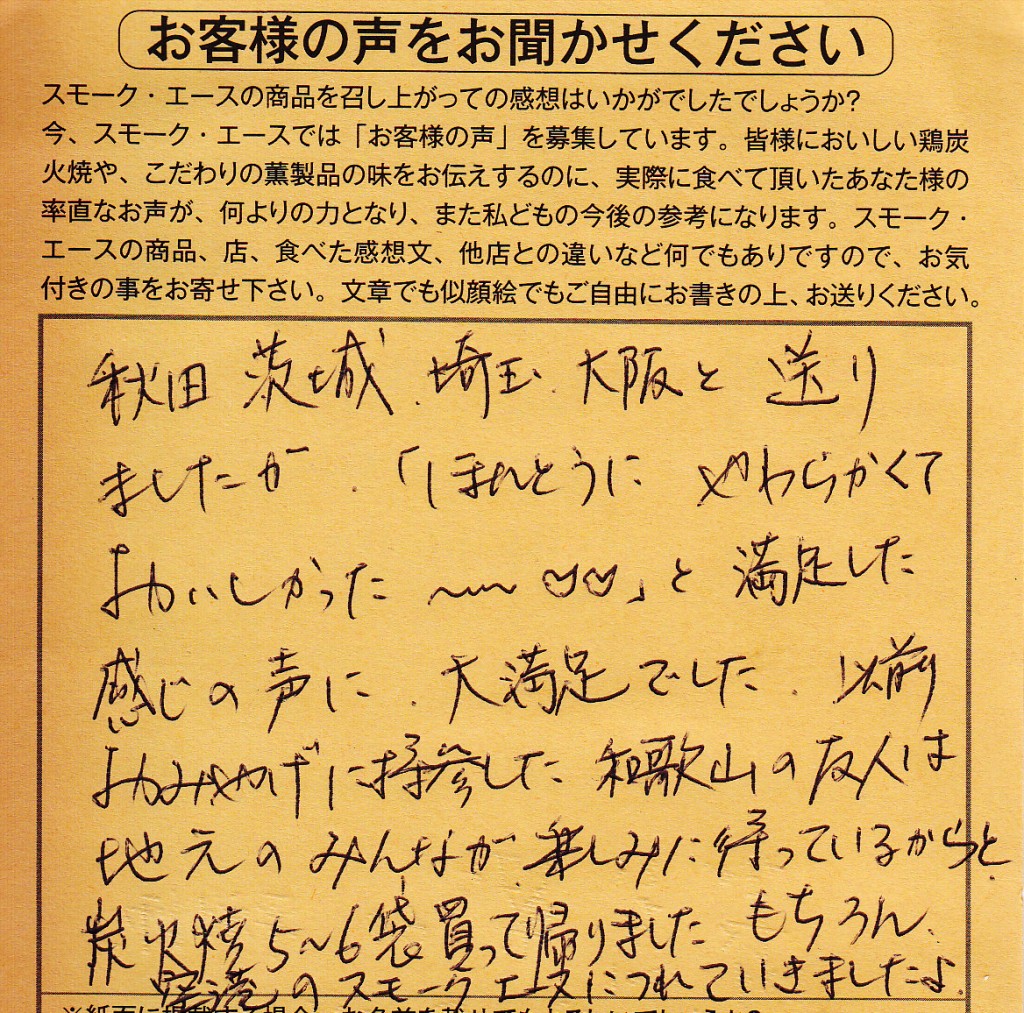 お客様の声をお聞かせください
スモーク・エースの商品を召し上がっての感想はいかがでしたでしょうか?
今、スモーク・エースでは「お客様の声」を募集しています。皆様においしい鶏炭
火焼や、こだわりの薫製品の味をお伝えするのに、実際に食べて頂いたあなた様の
率直なお声が、何よりの力となり、また私どもの今後の参考になります。スモーク・
エースの商品、店、食べた感想文、他店との違いなど何でもありですので、お気
付きの事をお寄せ下さい。文章でも似顔絵でもご自由にお書きの上、お送りください。
秋田 茨城、埼玉、大阪と 送り
ましたが、「ほんとうに やわらかくて
おいしかった〜〜 ♡♡」と 満足した
感じの 声に、大満足でした、以前
おみやげに持参した 和歌山の 友人は
地元の みんなが、楽しみに 待っているからと
炭火焼 5〜6袋買って帰りました もちろん、
のスモークエースにつれていきましたよ。